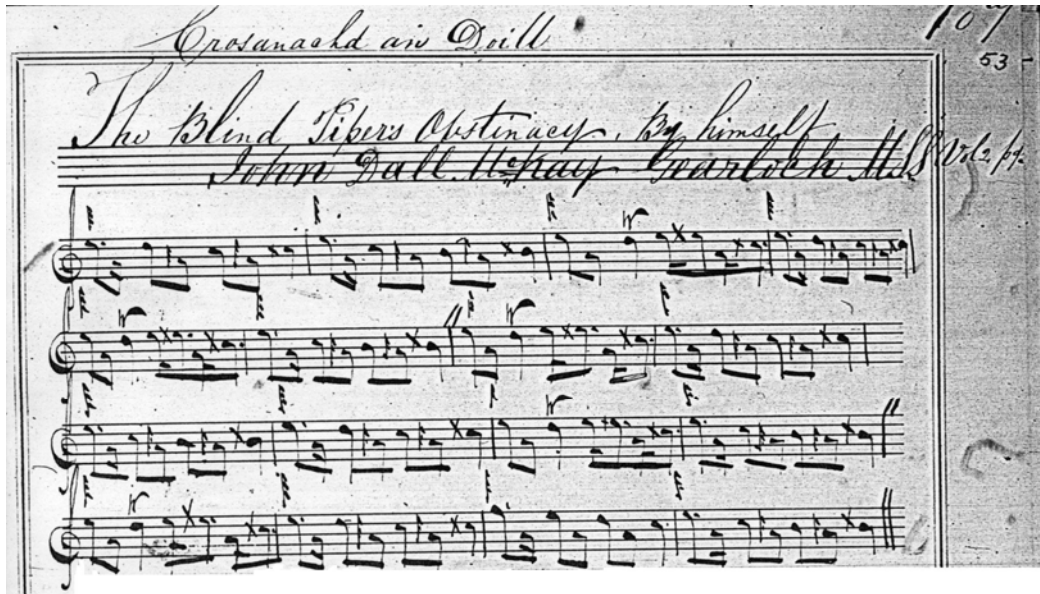 Crosanachd an Doill
53
The Blind Pipers Obstinacy. By himself
John Dall McKay Gearloch MSS Vol 2, pg.